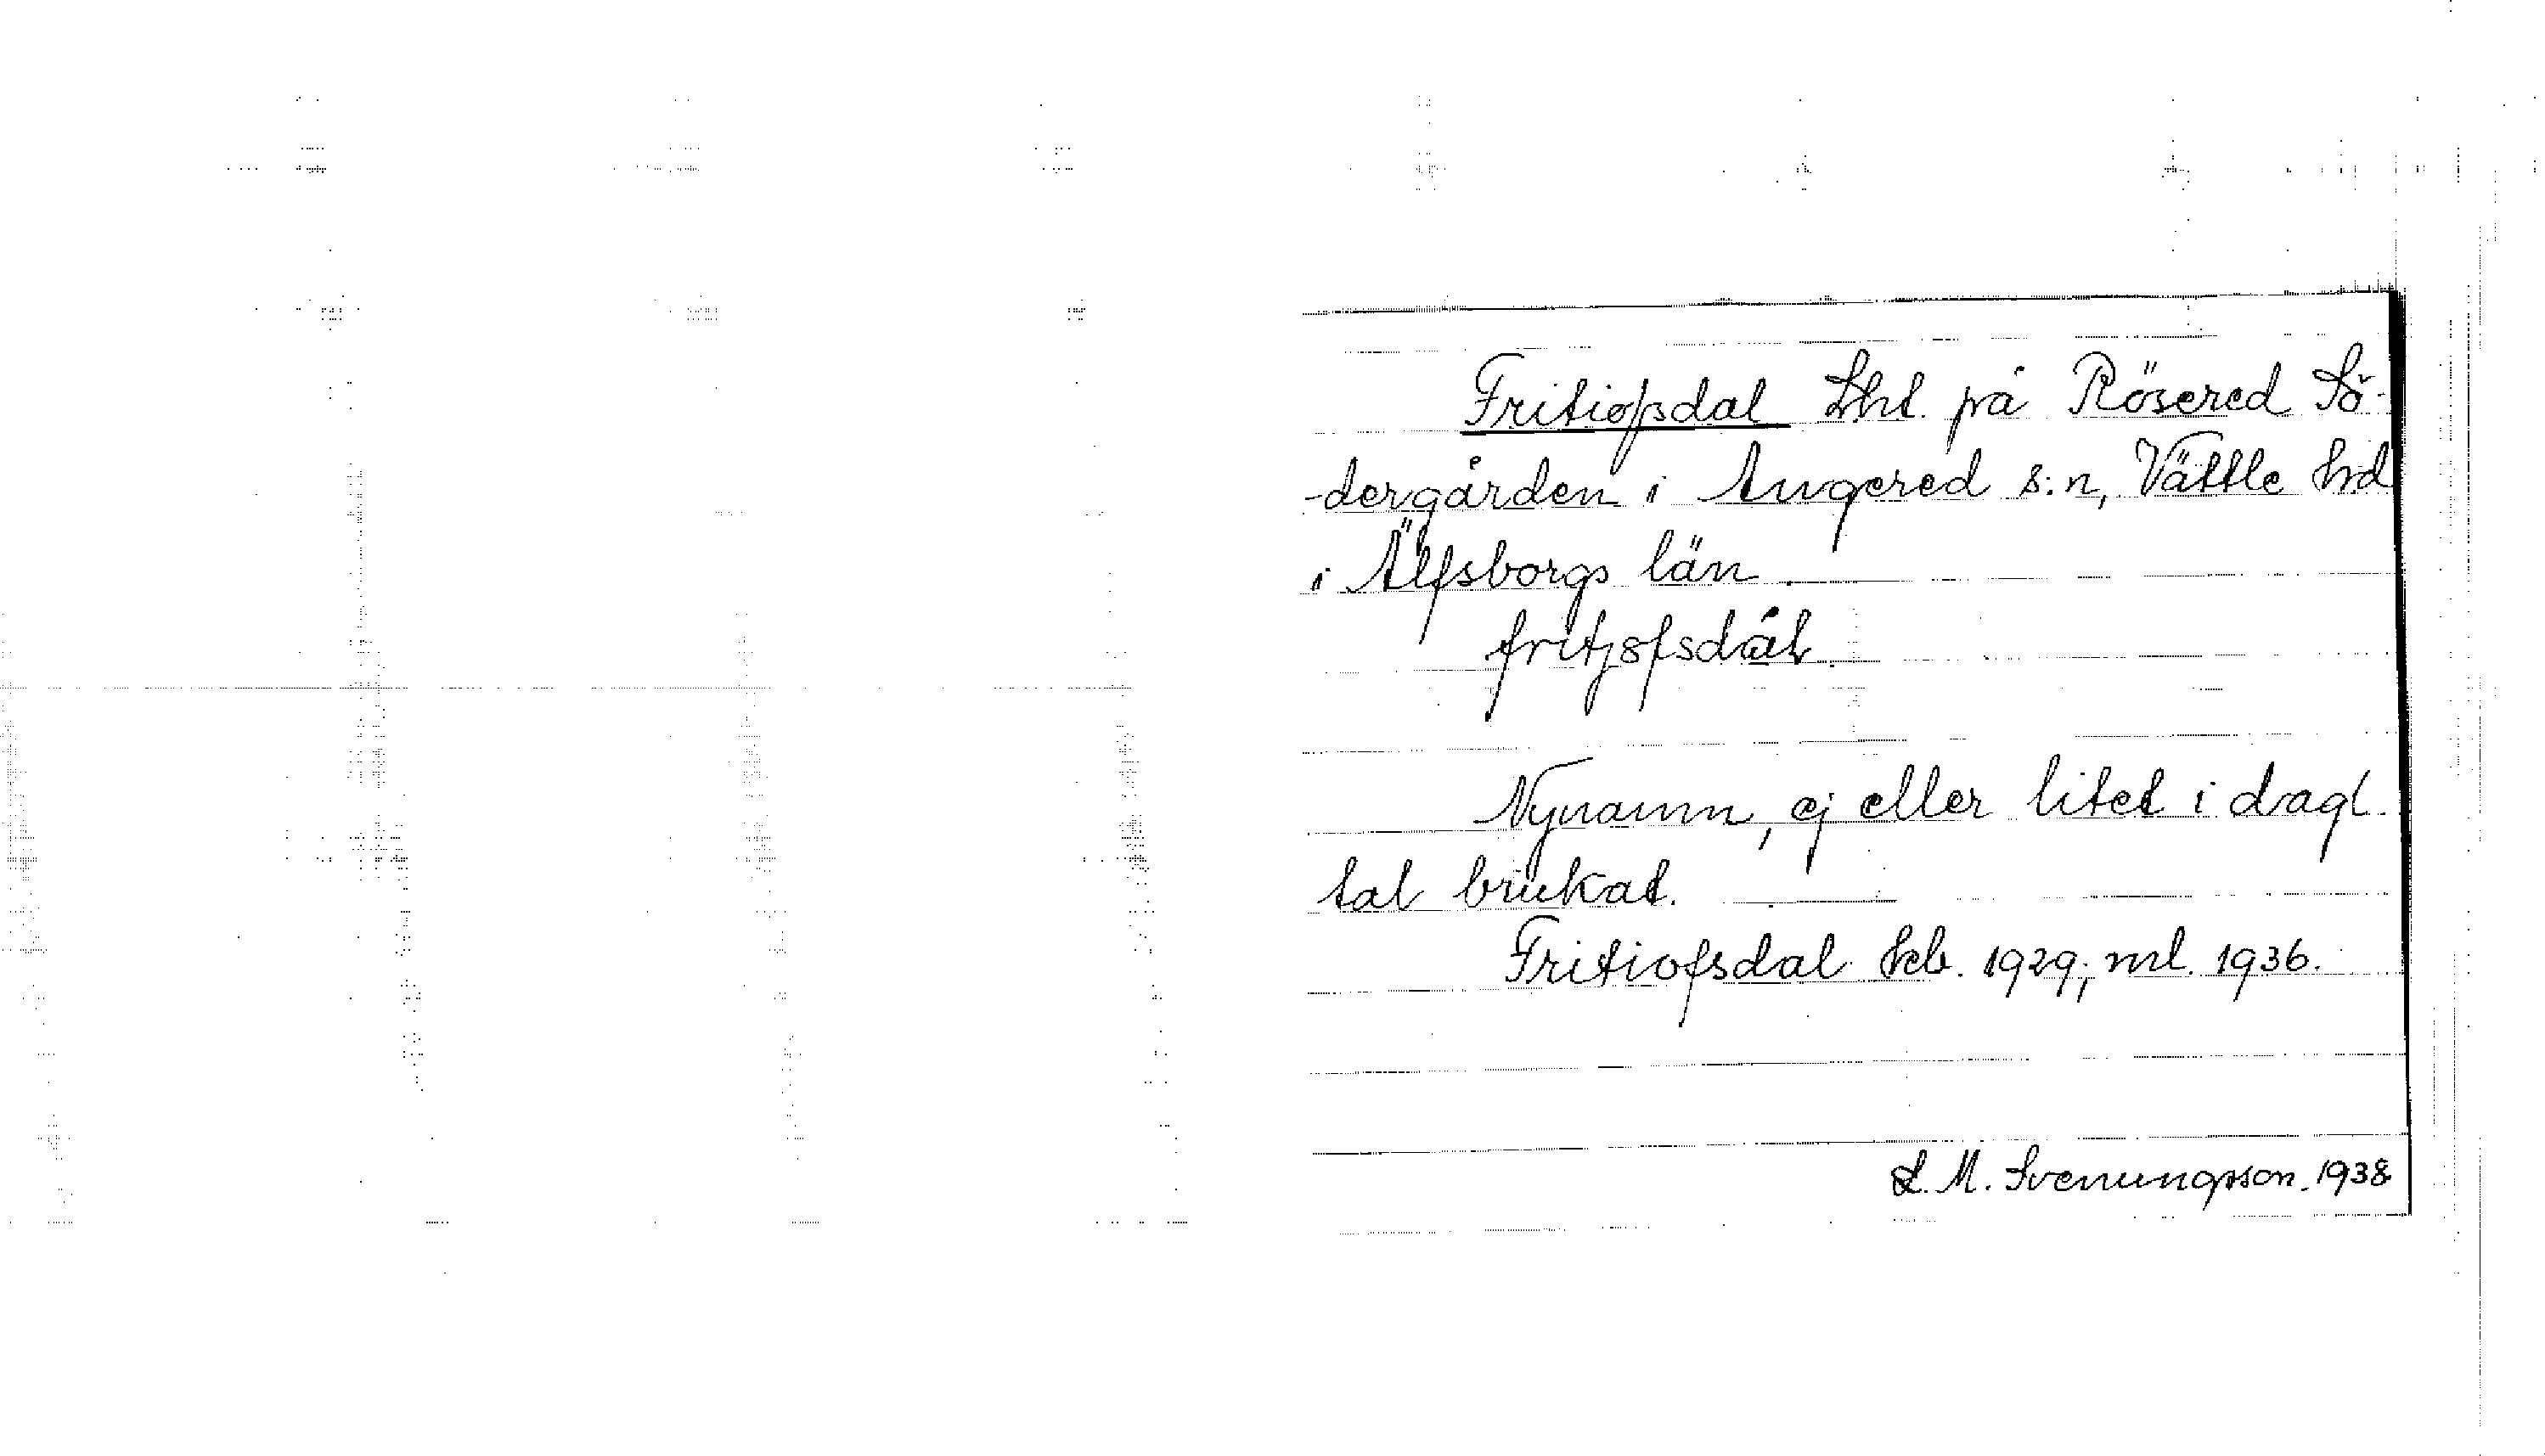 Fritiofsdal Lht. på Rösered Sö-
-dergården i Angered s:n, Vättle hd
i Älfsborgs län.
Nynamn, ej eller litet i dagl.
tal brukat.
Fritiofsdal Jeb. 1929; ml. 1936.
L. M. Svenungsson. 1938